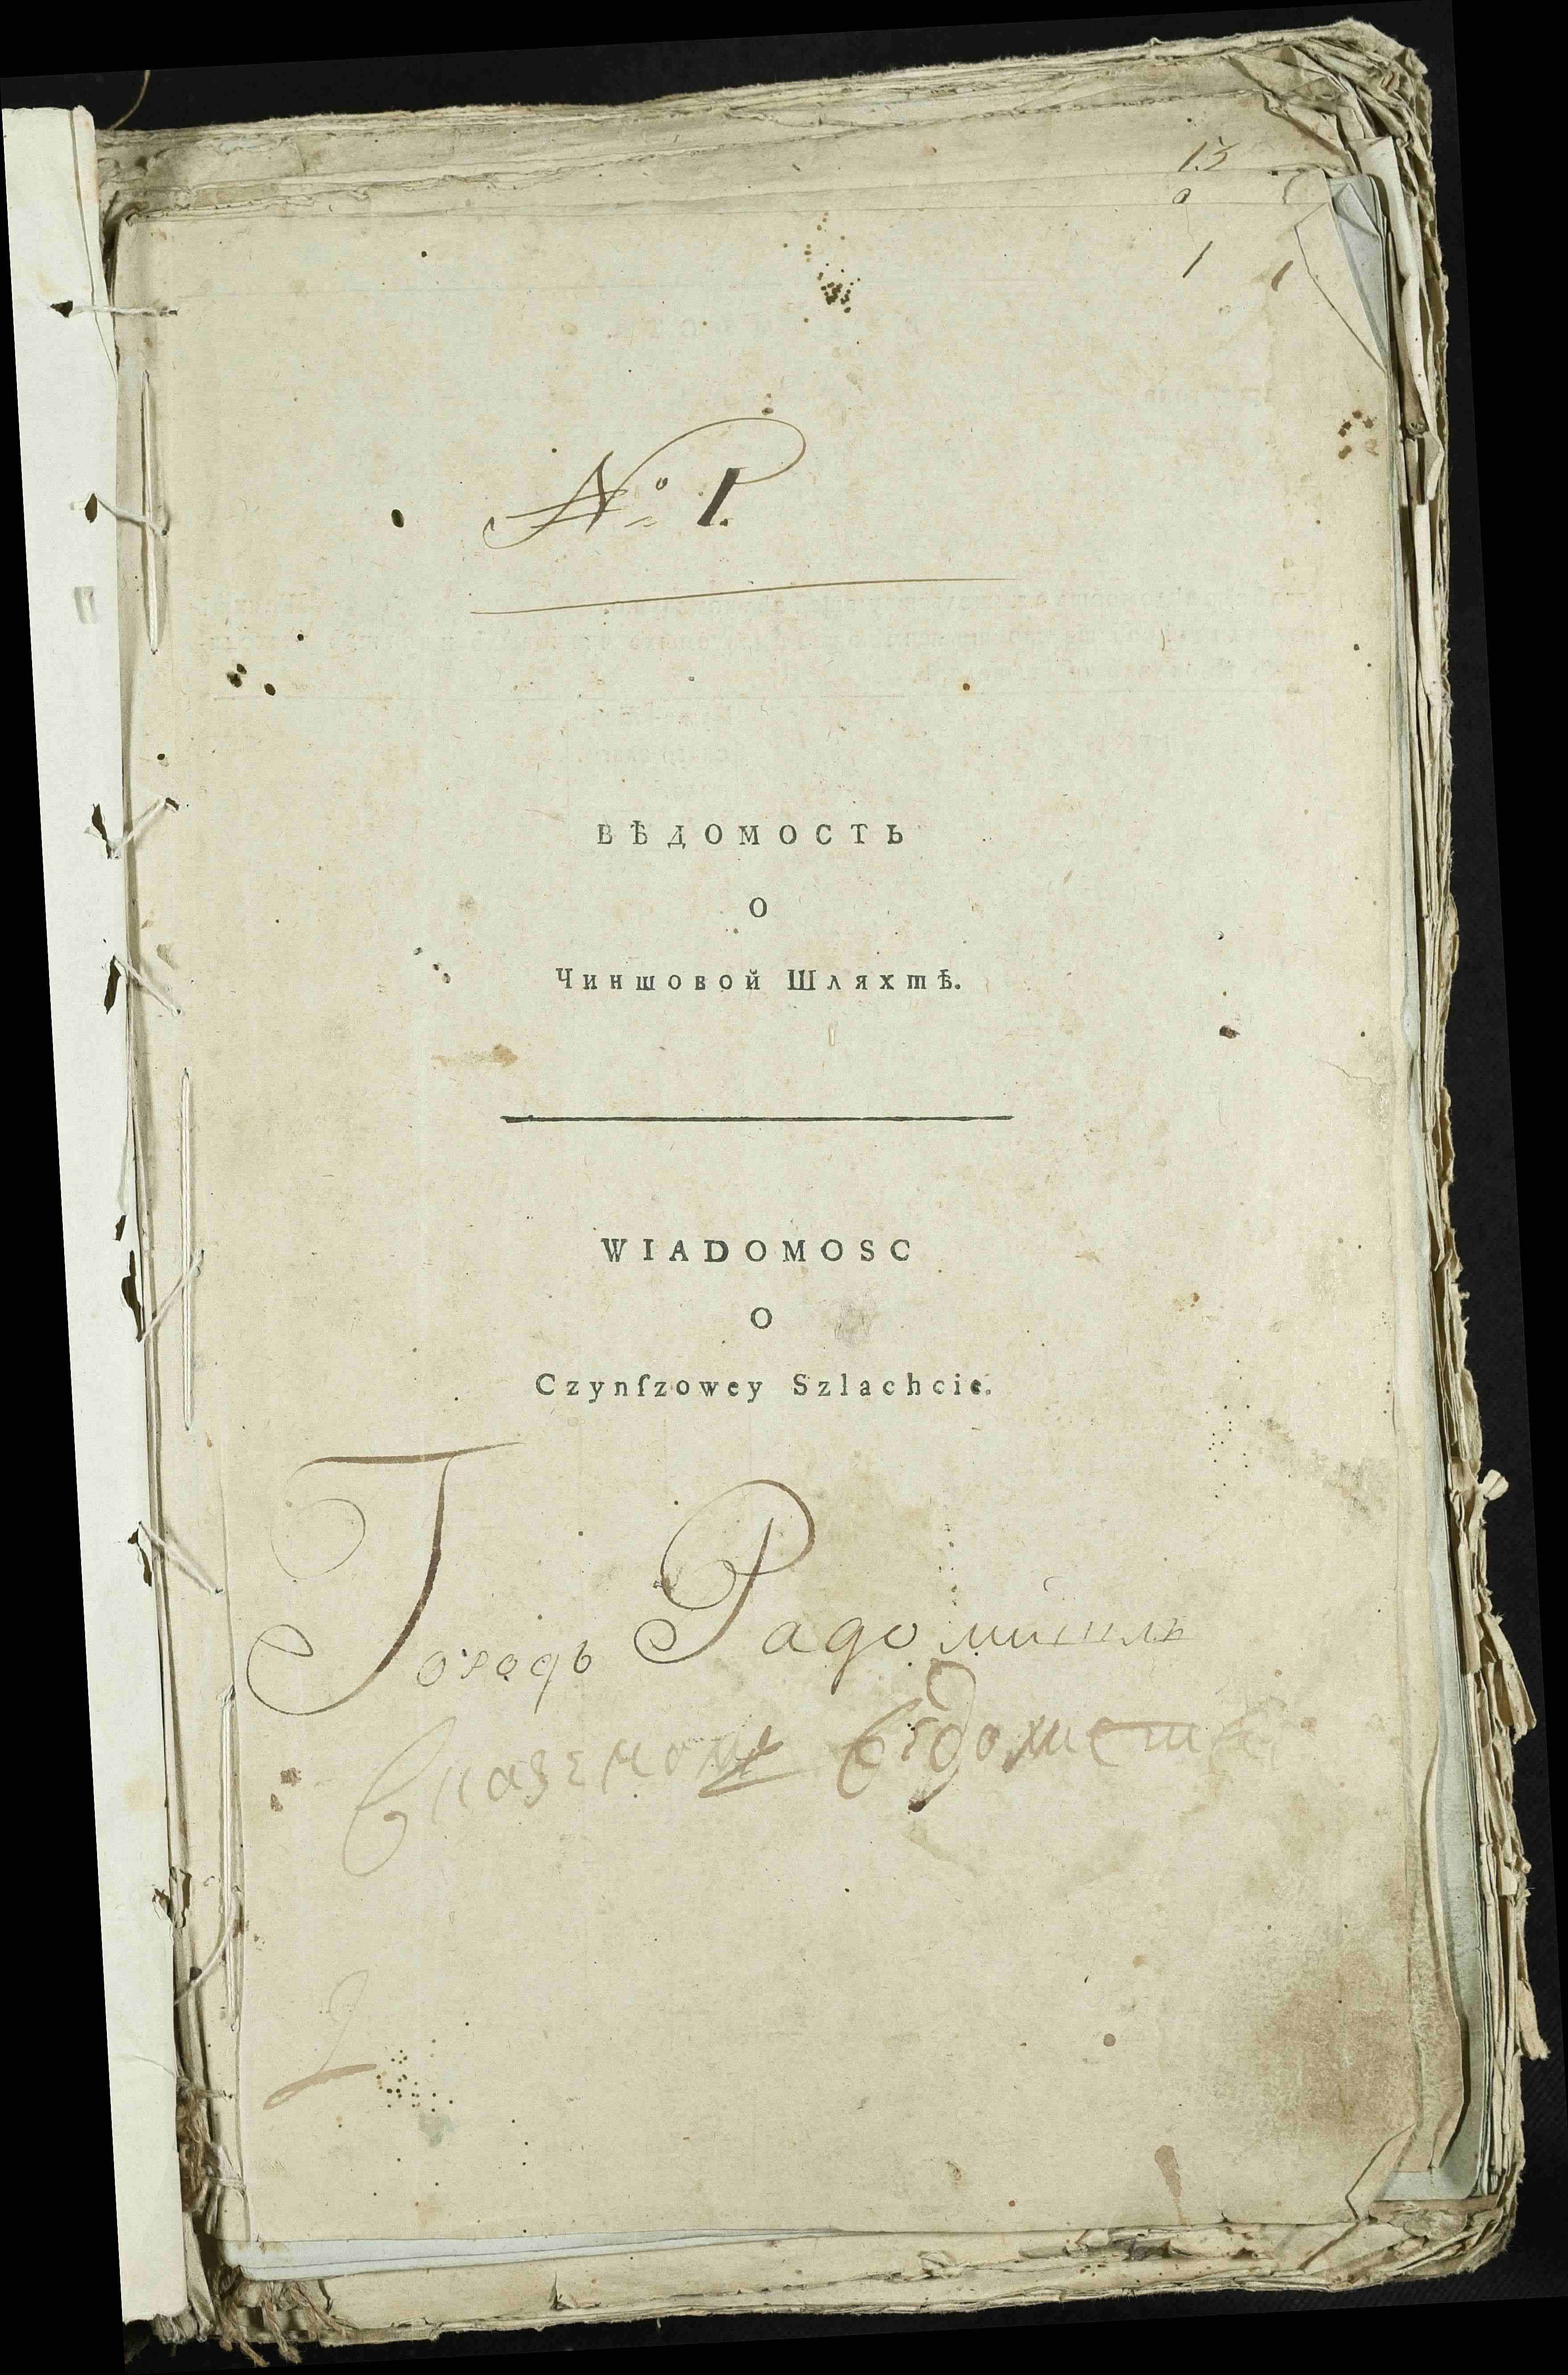 13
1 1
№ 1.
ВѢДОМОСТЬ
О
Чиншовой Шляхтѣ.
WIADOMOSC
O
Czynſzowey Szlachcie.
Городъ Радомишль
Вказеномъ Ведомстве